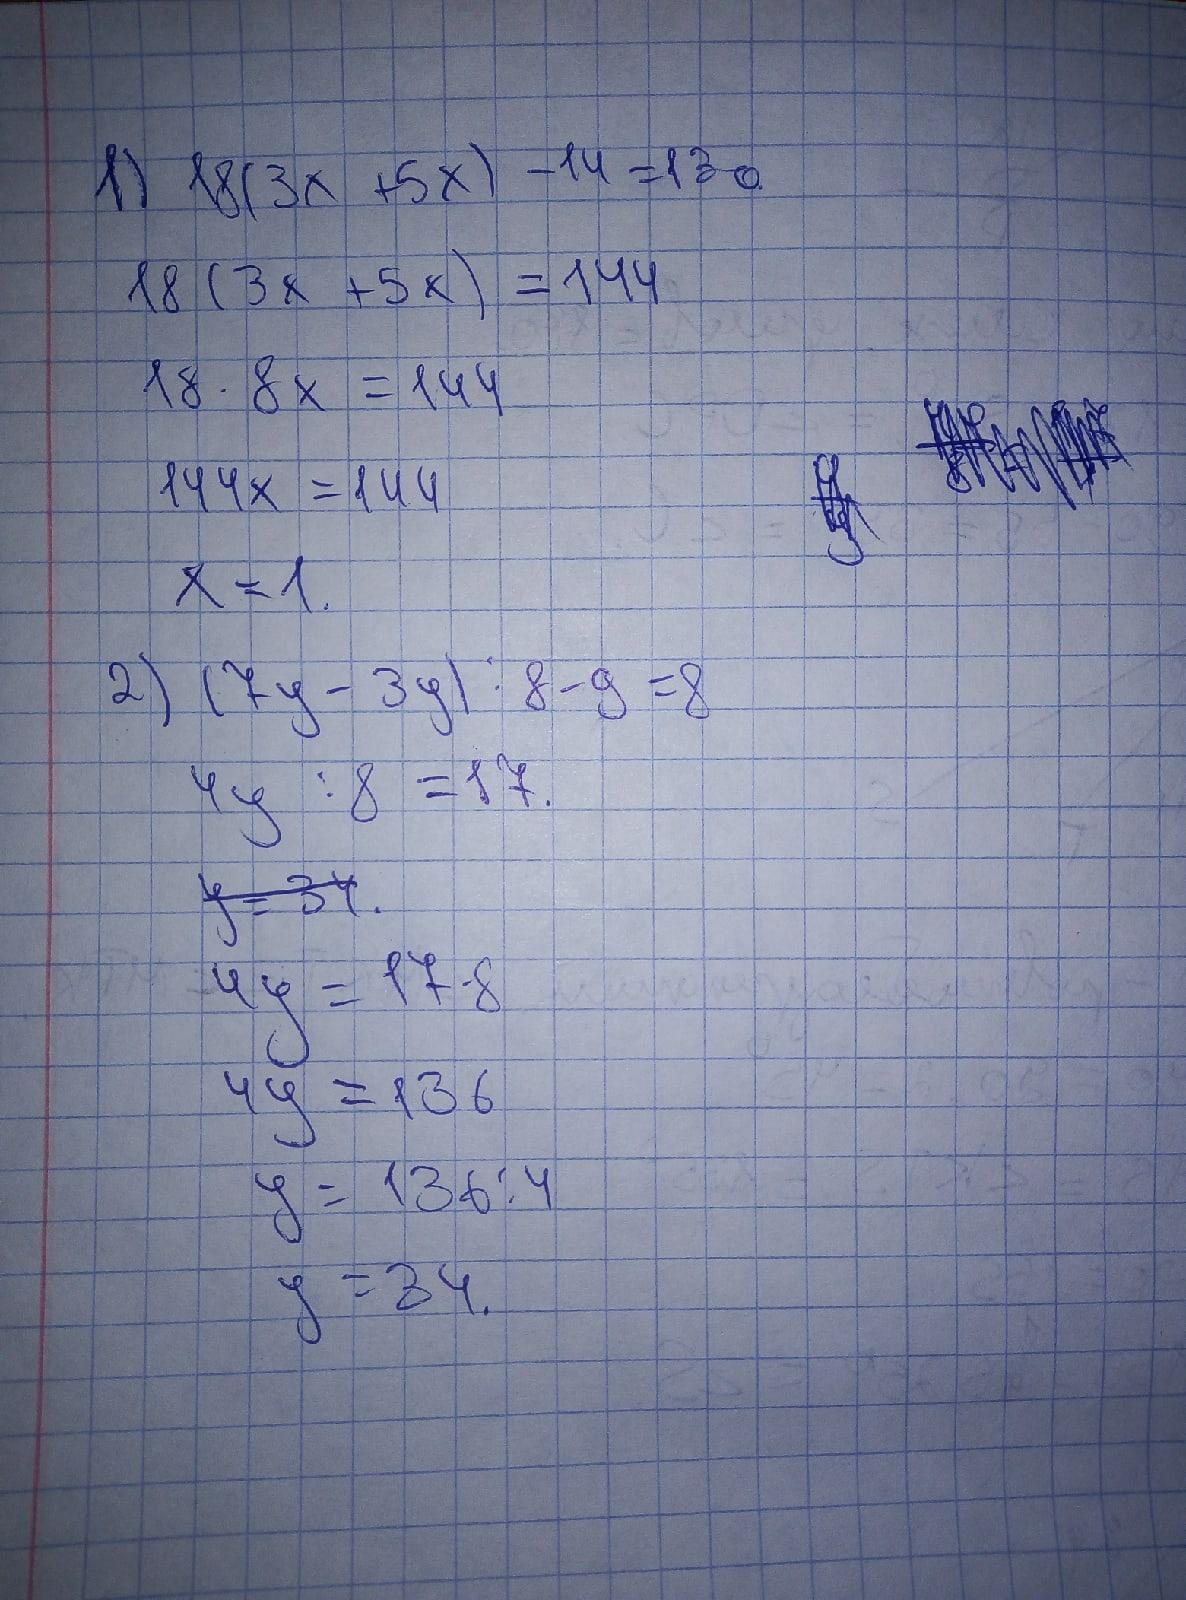 1) 18(3x + 5x) - 14 = 130
18(3x + 5x) = 144
18 · 8x = 144
144x = 144
x = 1.
2) (7y - 3y) : 8 - 9 = 8
4y : 8 = 17.
y = 34.
4y = 17 · 8
4y = 136
y = 136 : 4
y = 34.